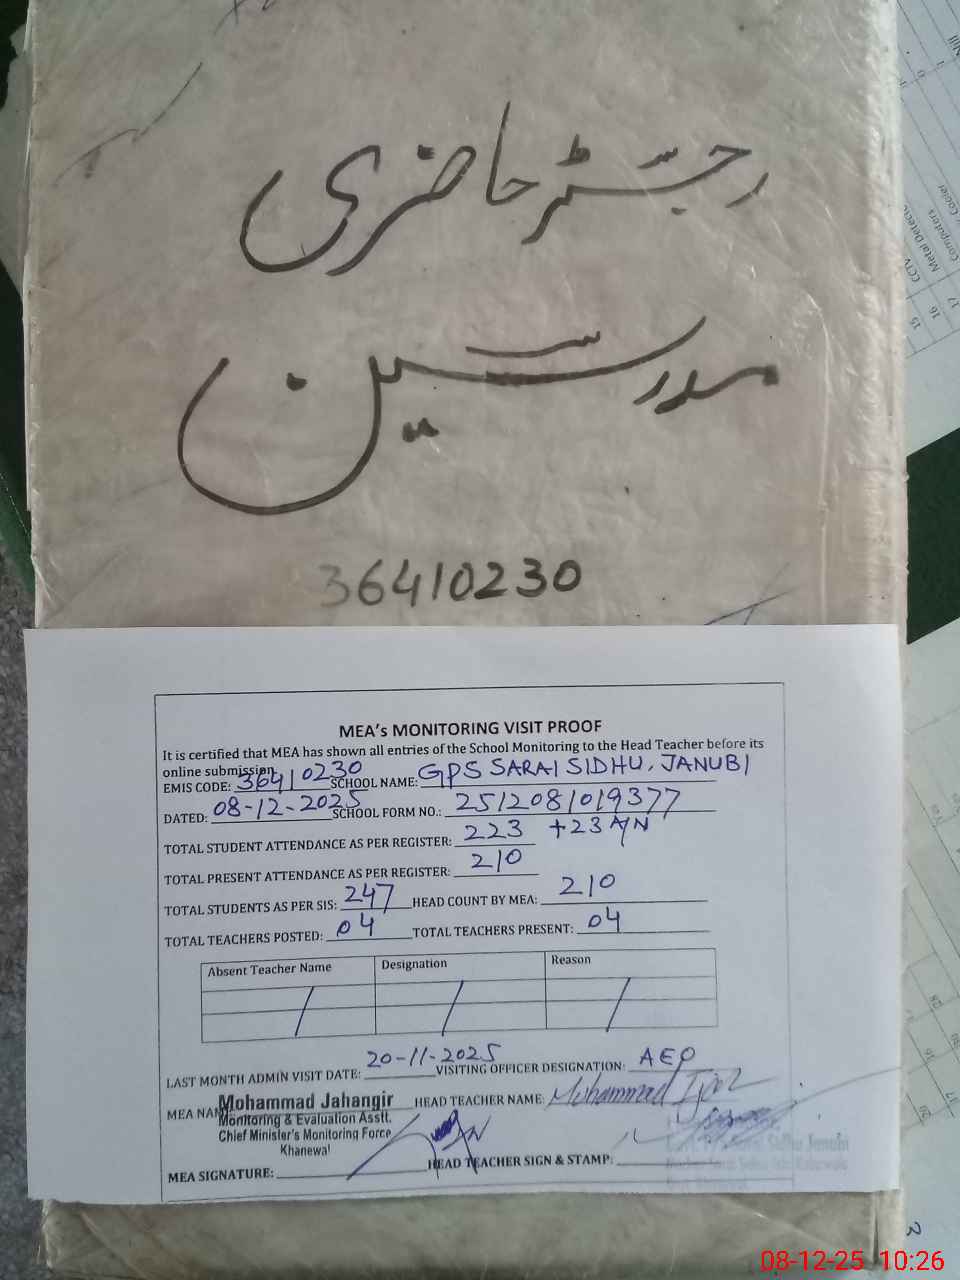 رجسٹر حاضری
مدرسین
36410230
MEA's MONITORING VISIT PROOF
It is certified that MEA has shown all entries of the School Monitoring to the Head Teacher before its
online submission
EMIS CODE: 36410230 SCHOOL NAME: GPS SARAI SIDHU, JANUBI
DATED: 08-12-2025 SCHOOL FORM NO.: 2512081019377
TOTAL STUDENT ATTENDANCE AS PER REGISTER: 223 +23 A/N
TOTAL PRESENT ATTENDANCE AS PER REGISTER: 210
TOTAL STUDENTS AS PER SIS: 247 HEAD COUNT BY MEA: 210
TOTAL TEACHERS POSTED: 04 TOTAL TEACHERS PRESENT: 04
Absent Teacher Name Designation Reason
/ / /
LAST MONTH ADMIN VISIT DATE: 20-11-2025 VISITING OFFICER DESIGNATION: AEO
MEA NAM Mohammad Jahangir HEAD TEACHER NAME: Mohammad
Monitoring & Evaluation Asstt.
Chief Minister's Monitoring Force
Khanewal
MEA SIGNATURE: HEAD TEACHER SIGN & STAMP:
Sidhu Janubi
15 CCTV
16 Metal Detecto
17 Computers
Cooler
08-12-25 10:26